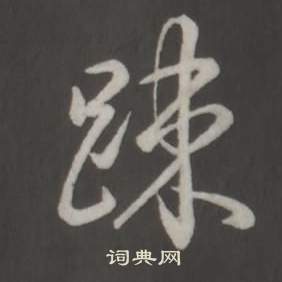 踈
词典网